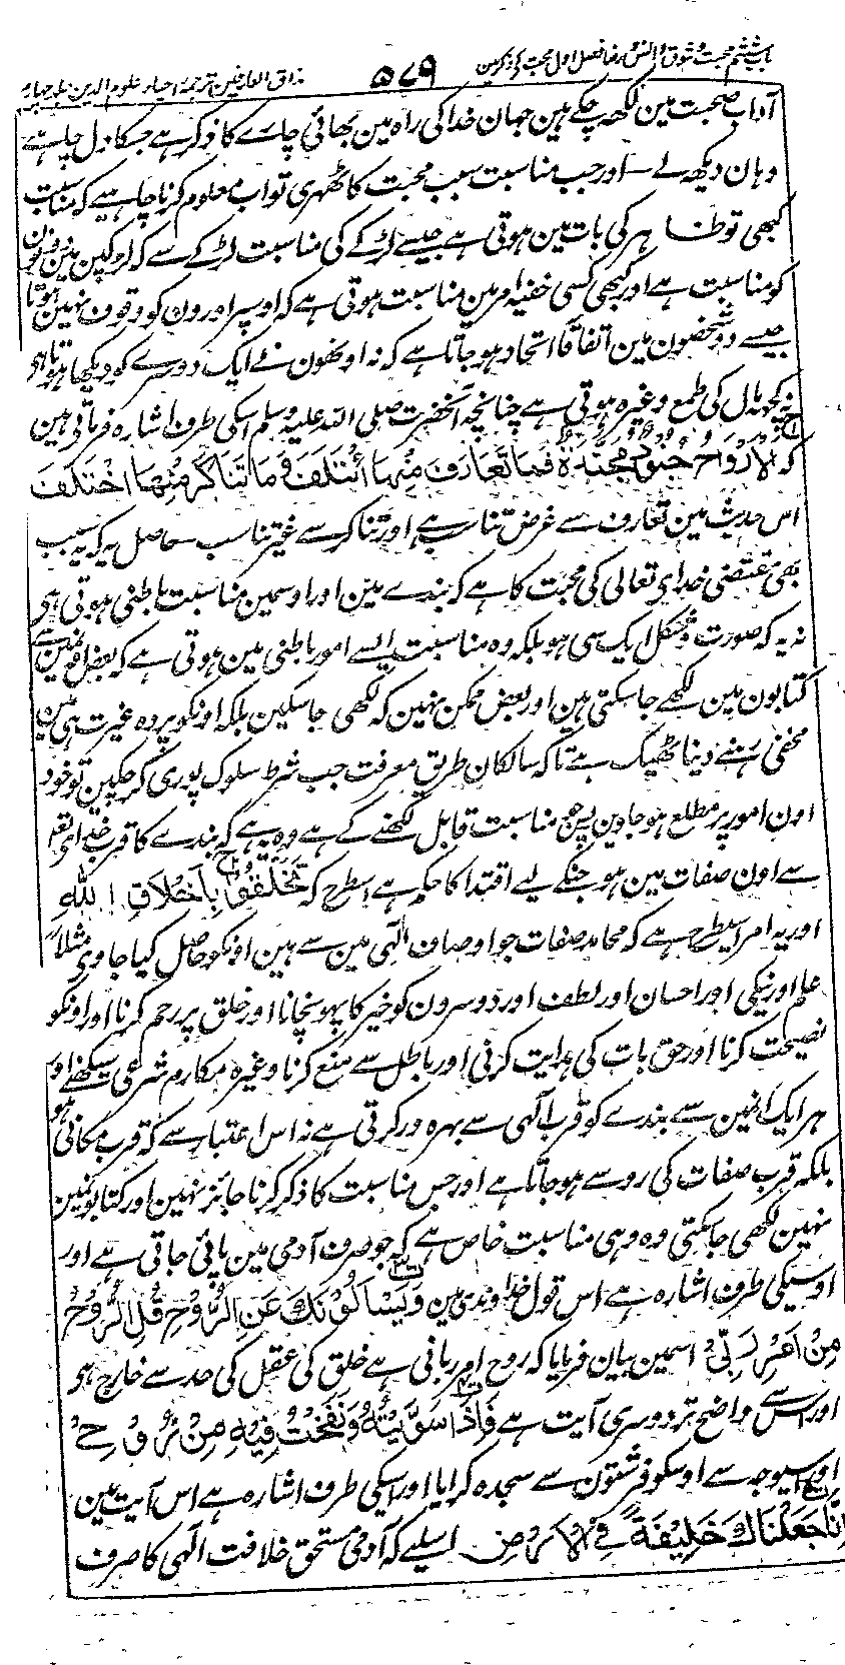 باب ششم محبت و شوق و انس و رضا فصل اول محبت کے ذکر مین ۵۷۹ مذاق العارفین ترجمہ احیاء علوم الدین جلد چہارم
آداب صحبت مین لکھ چکے ہین جہان خدا کی راہ مین بھائی چارے کا ذکر ہے جسکا دل چاہے
وہان دیکھ لے – اور جب مناسبت سبب محبت کا ٹھہری تو اب معلوم کرنا چاہیے کہ مناسبت
کبھی تو ظاہر کی بات مین ہوتی ہے جیسے لڑکے کی مناسبت لڑکے سے کہ لڑکپن مین دونون
کو مناسبت ہے اور کبھی کسی خفیہ امر مین مناسبت ہوتی ہے کہ اوسپر اورون کو وقوف نہین ہوتا
جیسے دو شخصون مین اتفاقاً اتحاد ہو جاتا ہے کہ نہ اونھون نے ایک دوسرے کو دیکھا ہوتا ہی
نہ کچھ مال کی طمع وغیرہ ہوتی ہے چنانچہ آنحضرت صلی اللہ علیہ وسلم اسکی طرف اشارہ فرماتی ہین
کہ الارواح جنود مجندۃ فما تعارف منہا ائتلف و ما تناکر منہا اختلف
اس حدیث مین تعارف سے غرض تناسب ہے اور تناکر سے غیر تناسب حاصل یہ کہ یہ سبب
بھی مقتضی خدای تعالی کی محبت کا ہے کہ بندے مین اور اوسمین مناسبت باطنی ہوتی ہی
نہ یہ کہ صورت و شکل ایک سی ہو بلکہ وہ مناسبت ایسے امور باطنی مین ہوتی ہے کہ بعض اونمین سے
کتابون مین لکھے جا سکتی ہین اور بعض ممکن نہین کہ لکھی جا سکین بلکہ اونکو پردہ غیرت ہی مین
مخفی رہنے دینا ٹھیک ہے تاکہ سالکان طریق معرفت جب شرط سلوک پوری کر چکین تو خود
اون امور پر مطلع ہو جاوین پس جو مناسبت قابل لکھنے کے ہے وہ یہ ہے کہ بندے کا قرب خدای تعالی
سے اون صفات مین ہو جنکے لیے اقتدا کا حکم ہے اسطرح کہ تَخَلَّقُوا بِاَخْلَاقِ اللہِ
اور یہ امر اسطرح ہے کہ محامد صفات جو اوصاف الٰہی مین سے ہین اونکو حاصل کیا جاوی مثلاً
علم اور نیکی اور احسان اور لطف اور دوسرون کو خیر کا پہونچانا اور خلق پر رحم کرنا اور اونکو
نصیحت کرنا اور حق بات کی ہدایت کرنی اور باطل سے منع کرنا وغیرہ مکارم شرعی سیکھنے اور
ہر ایک انمین سے بندے کو قرب الٰہی سے بہرہ ور کرتی ہے نہ اس اعتبار سے کہ قرب مکانی ہو
بلکہ قرب صفات کی رو سے ہو جاتا ہے اور جس مناسبت کا ذکر کرنا جائز نہین اور کتابونمین
نہین لکھی جا سکتی وہ وہی مناسبت خاص ہے کہ جو صرف آدمی مین پائی جاتی ہے اور
اوسیکی طرف اشارہ ہے اس قول خداوندی مین وَیَسْاَلُوْنَکَ عَنِ الرُّوْحِ قُلِ الرُّوْحُ
مِنْ اَمْرِ رَبِّیْ اسمین بیان فرمایا کہ روح امر ربانی ہے خلق کی عقل کی حد سے خارج ہو
اور اس سے واضح تر دوسری آیت ہے فَاِذَا سَوَّیْتُہٗ وَنَفَخْتُ فِیْہِ مِنْ رُّوْحِیْ
اور اسیوجہ سے اوسکو فرشتون سے سجدہ کرایا اور اسیکی طرف اشارہ ہے اس آیت مین
اِنَّا جَعَلْنَاکَ خَلِیْفَۃً فِی الْاَرْضِ اسلیے کہ آدمی مستحق خلافت الٰہی کا صرف